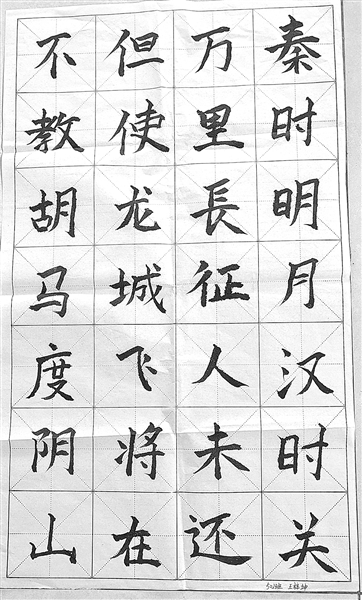 秦时明月汉时关
万里長征人未还
但使龙城飞将在
不教胡马度阴山